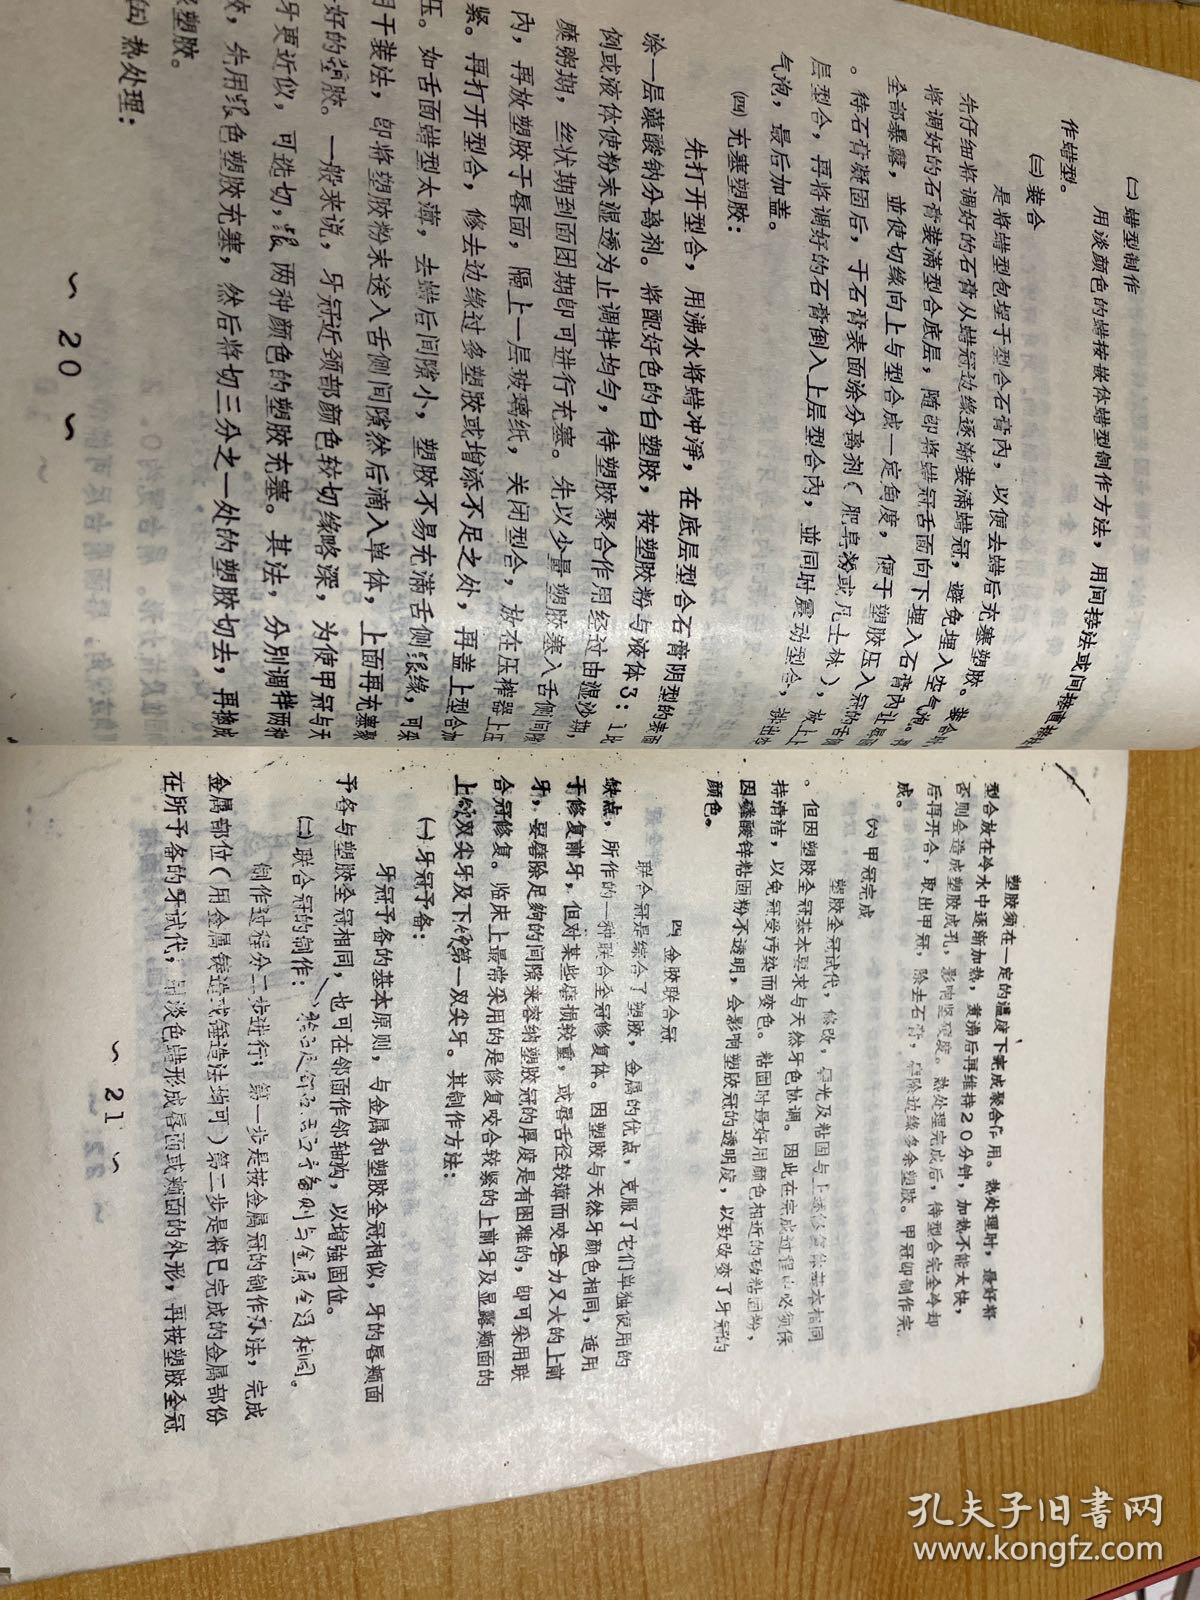 (二)蜡型制作
用淡颜色的蜡按嵌体蜡型制作方法，用间接法或间接直接
作蜡型。
(三)装合
是将蜡型包埋于型合石膏内，以便去蜡后充塞塑胶。装合
先仔细将调好的石膏从蜡冠边缘逐渐装满蜡冠，避免埋入空气泡。
将调好的石膏装满型合底层，随即将蜡冠舌面向下埋入石膏内让
全部暴露，並使切缘向上与型合成一定角度，便于塑胶压入冠的舌
。待石膏凝固后，于石膏表面涂分离剂（肥皂水或凡士林），放上上
层型合，再将调好的石膏倒入上层型合内，並同时震动型合，
气泡，最后加盖。
(四)充塞塑胶：
先打开型合，用沸水将蜡冲淨，在底层型合石膏阴型的表面
涂一层藻酸钠分离剂。将配好色的白塑胶，按塑胶粉与液体3：1比
例或液体使粉末湿透为止调拌均匀，待塑胶聚合作用经过由湿沙期，
糜粥期，丝状期到面团期即可进行充塞。先以少量塑胶塞入舌侧间隙
内，再放塑胶于唇面，隔上一层玻璃纸，关闭型合，放在压榨器上压
紧。再打开型合，修去边缘过多塑胶或增添不足之处，再盖上型合加
压。如舌面蜡型太薄，去蜡后间隙小，塑胶不易充满舌侧龈缘，可采
用干装法，即将塑胶粉末送入舌侧间隙然后滴入单体，上面再充塞聚
好的塑胶。一般来说，牙冠近颈部颜色较切缘略深，为使甲冠与天
牙更近似，可选切，龈两种颜色的塑胶充塞。其法，分别调拌两种
胶，先用龈色塑胶充塞，然后将切三分之一处的塑胶切去，再换成
塑胶。
(五)热处理：
～20～
塑胶须在一定的温度下完成聚合作用。热处理时，最好将
型合放在冷水中逐渐加热，煮沸后再维持20分钟，加热不能太快，
否则会造成塑胶成孔，影响坚硬度。热处理完成后，待型合完全冷却
后再开合，取出甲冠，除去石膏，磨除边缘多余塑胶。甲冠即制作完
成。
(六)甲冠完成
塑胶全冠试代，修改，磨光及粘固与上述修复体基本相同
。但因塑胶全冠基本要求与天然牙色协调。因此在完成过程中必须保
持清洁，以免冠受污染而变色。粘固时最好用颜色相近的矽粘固粉，
因磷酸锌粘固粉不透明，会影响塑胶冠的透明度，以致改变了牙冠的
颜色。
四、金胶联合冠
联合冠是综合了塑胶，金属的优点，克服了它们单独使用的
缺点，所作的一种联合全冠修复体。因塑胶与天然牙颜色相同，适用
于修复前牙，但对某些磨损较重，或唇舌径较薄而咬𬌗力又大的上前
牙，要磨除足夠的间隙来容纳塑胶冠的厚度是有困难的，即可采用联
合冠修复。临床上最常采用的是修复咬合较紧的上前牙及显露颊面的
上颌双尖牙及下颌第一双尖牙。其制作方法：
(一)牙冠予备：
牙冠予备的基本原则，与金属和塑胶全冠相似，牙的唇颊面
予备与塑胶全冠相同，也可在邻面作邻轴沟，以增强固位。
(二)联合冠的制作：
予备则与金属全冠相同。
制作过程分二步进行；第一步是按金属冠的制作办法，完成
金属部位（用金属铸造或锤造法均可）第二步是将已完成的金属部份
在所予备的牙试代，用淡色蜡形成唇面或颊面的外形，再按塑胶全冠
～21～
孔夫子旧书网
www.kongfz.com